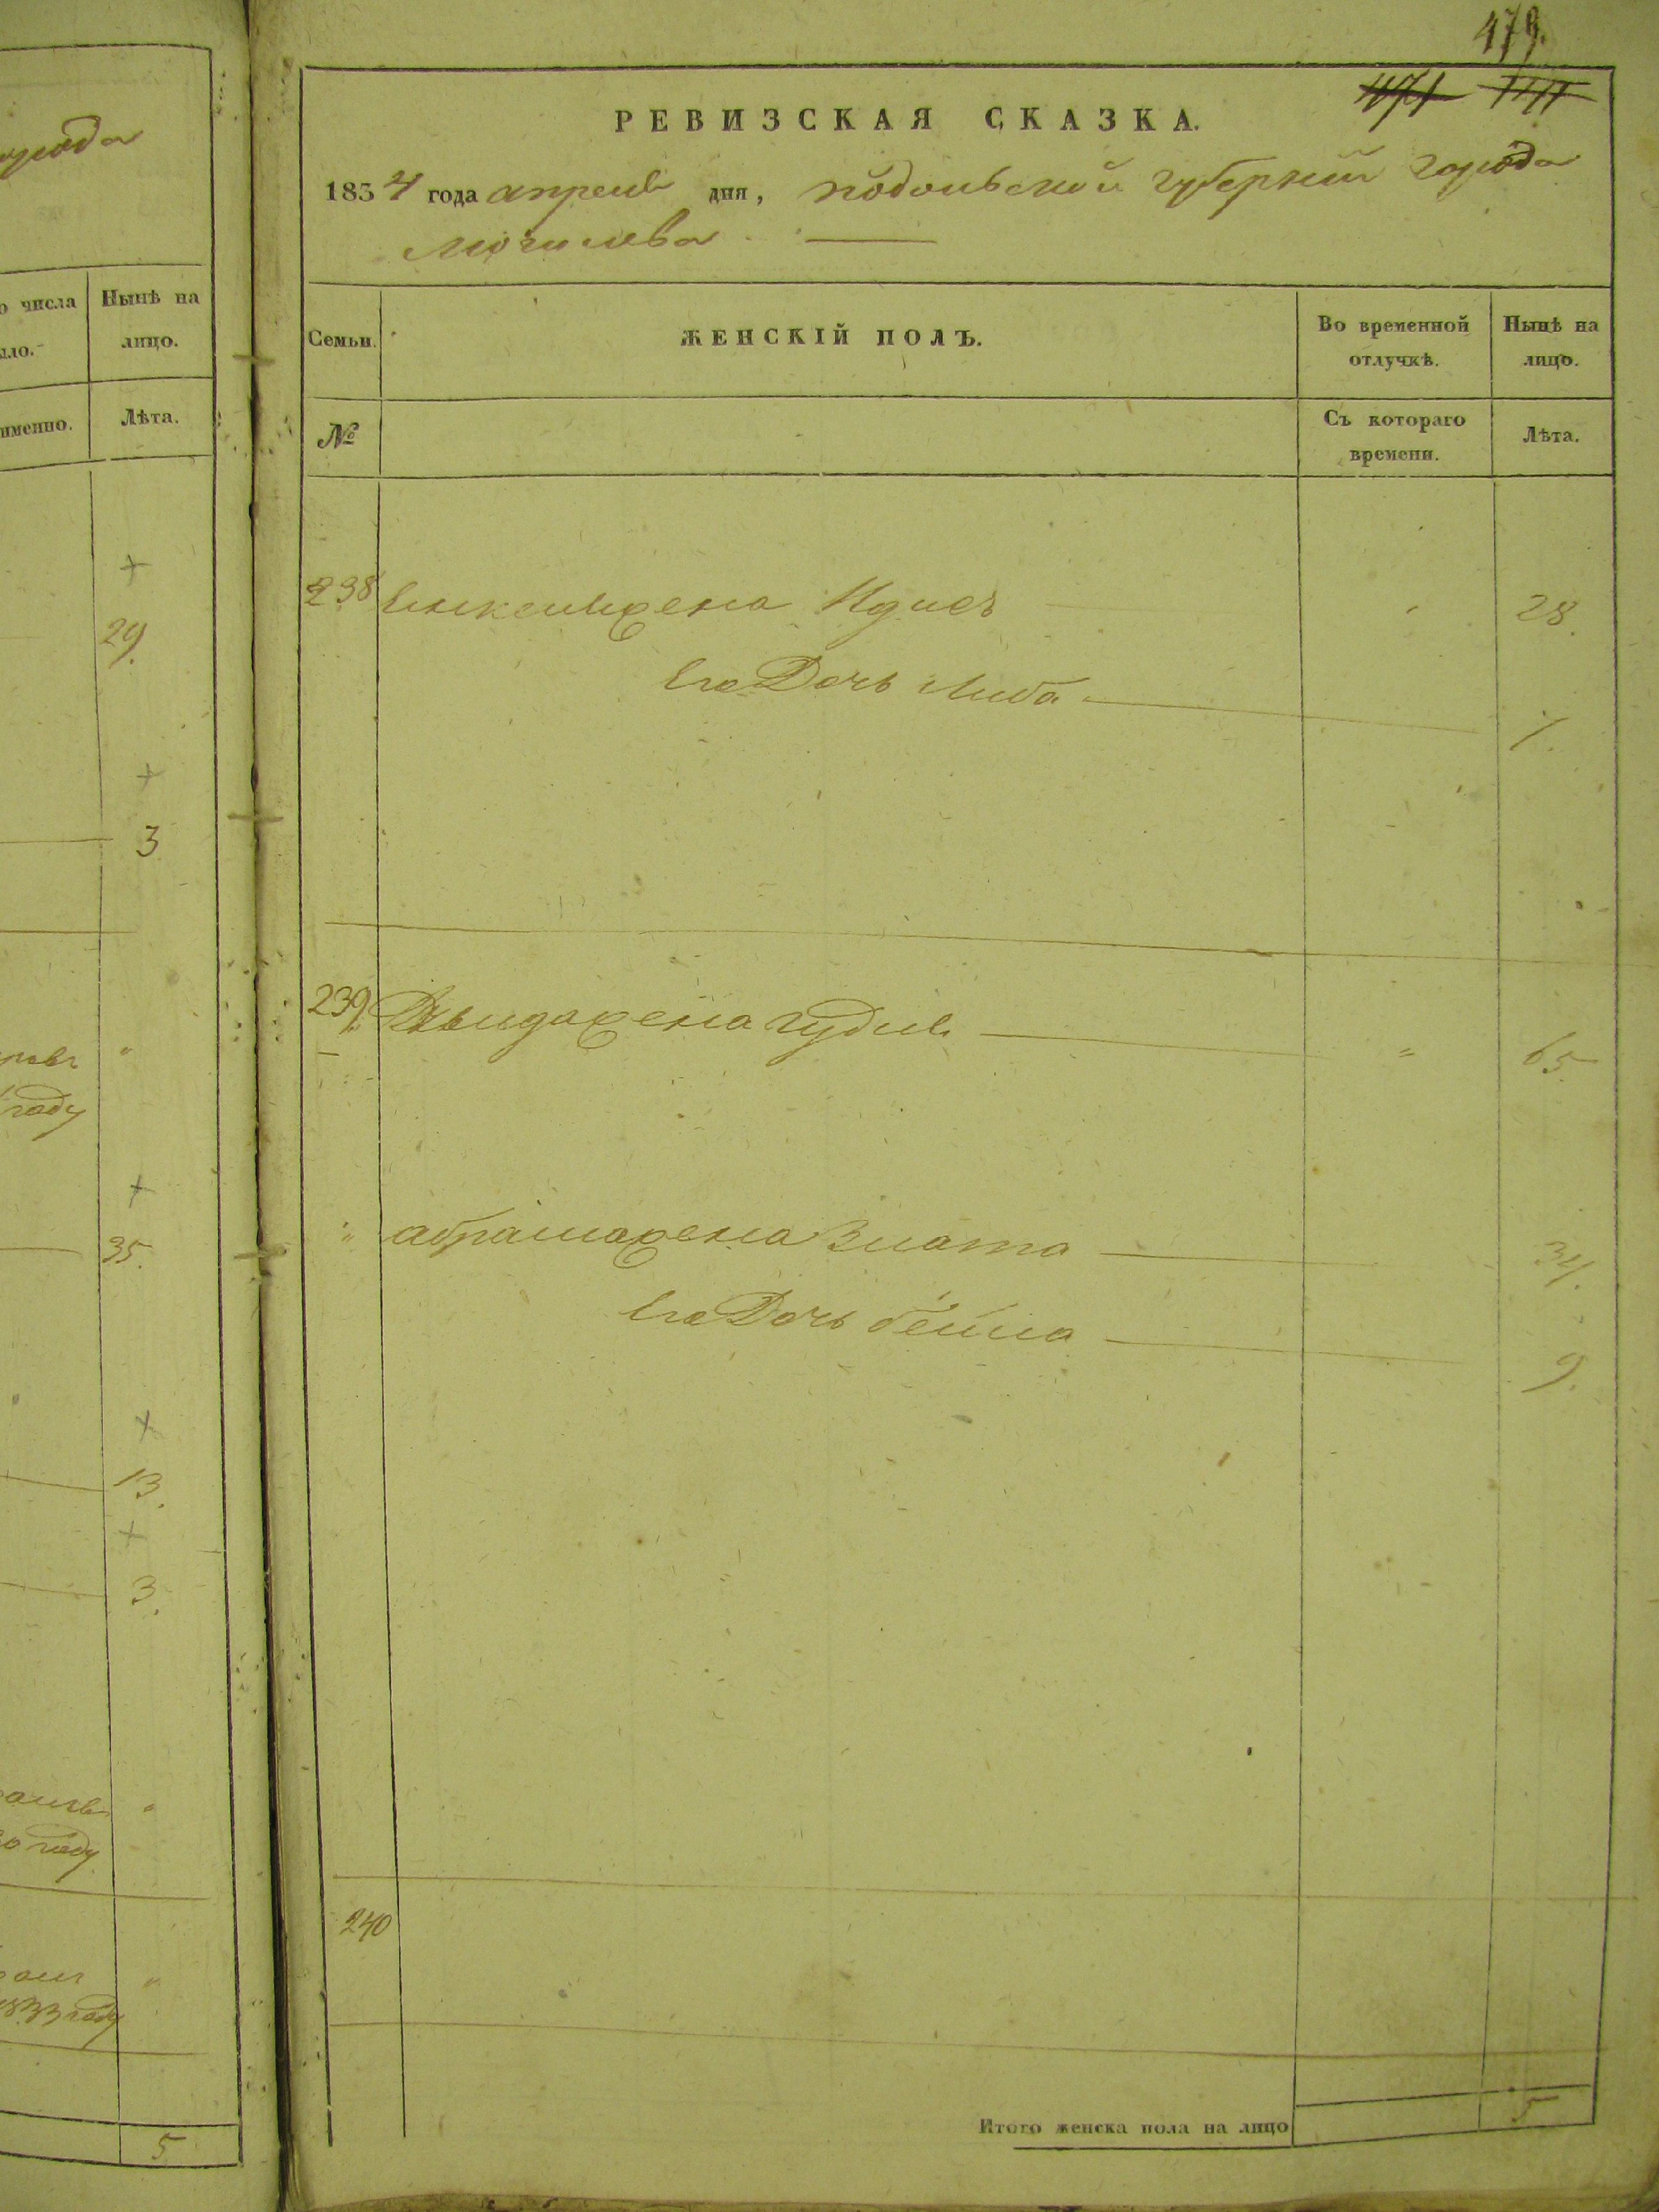 орода
о числа
Нынѣ на
ыло.
лицо.
именно.
Лѣта.
29.
3
году
35.
13.
3.
году
1833 году
5
479.
РЕВИЗСКАЯ СКАЗКА.
1834 года апреля дня, подольской губернии города
Могилева
Семьи.
ЖЕНСКІЙ ПОЛЪ.
Во временной отлучкѣ.
Нынѣ на лицо.
№
Съ котораго времени.
Лѣта.
238 жена 28.
Его Дочь Либа 1.
239. жена " 65.
" абрама жена Злата 34.
Его Дочь бейла 9.
240
Итого женска пола на лицо 5